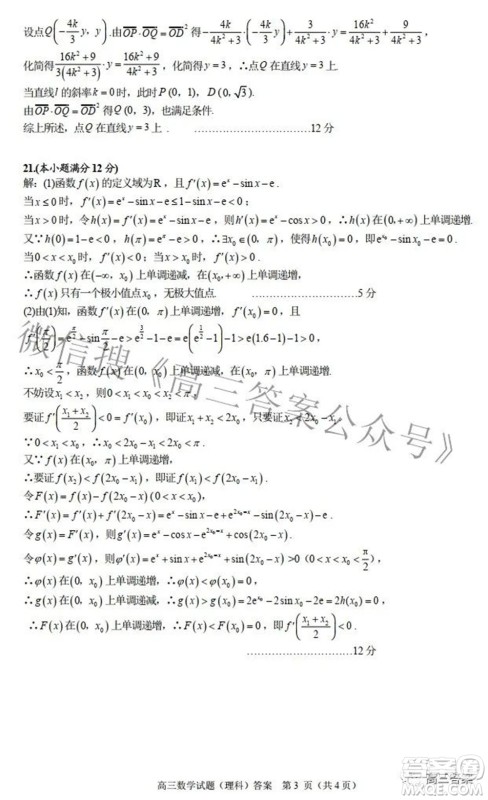 设点Q(-4k/3 y，y).由OP·OQ=OD²得-4k/(4k²+3)·(-4k/3 y)+3/(4k²+3) y=16k²/(4k²+3)+9/(4k²+3)，
化简得(16k²+9)/(3(4k²+3)) y=(16k²+9)/(4k²+3)，化简得y=3，点Q在直线y=3上.
当直线l的斜率k=0时，此时P(0，1)，D(0，√3).
由OP·OQ=OD²得Q(0，3)，也满足条件.
综上所述，点Q在直线y=3上. ……………12分
21.(本小题满分12分)
解：(1)函数f(x)的定义域为R，且f′(x)=eˣ-sin x-e.
当x≤0时，f′(x)=eˣ-sin x-e≤1-sin x-e<0；
当x>0时，令h(x)=f′(x)=eˣ-sin x-e，则h′(x)=eˣ-cos x>0，∴h(x)在(0,+∞)上单调递增.
又∵h(0)=1-e<0，h(π)=e^π-e>0，∴∃x₀∈(0，π)，使得h(x₀)=0，即e^x₀-sin x₀-e=0.
当0<x<x₀时，f′(x)<0；当x>x₀时，f′(x)>0.
∴函数f(x)在(-∞，x₀)上单调递减，在(x₀，+∞)上单调递增，
∴f(x)只有一个极小值点x₀，无极大值点. ……………5分
(2)由(1)知，函数f(x)在(0，x₀)上单调递减，在(x₀，π)上单调递增，
f′(π/2)=e^(π/2)-sin π/2-e>e^(3/2)-1-e=e(e^(1/2)-1)-1>e(1.6-1)-1>0，
∴x₀<π/2，函数f(x)在(0，x₀)上单调递减，在(x₀，π)上单调递增.
不妨设x₁<x₂，则0<x₁<x₀<x₂<π.
要证f′((x₁+x₂)/2)<0=f′(x₀)，即证x₁+x₂<2x₀，只要证x₂<2x₀-x₁.
∵0<x₁<x₀，∴x₀<2x₀-x₁<2x₀<π.
又∵f(x)在(x₀，π)上单调递增，
∴要证f(x₂)<f(2x₀-x₁)，即证f(x₁)<f(2x₀-x₁).
令F(x)=f(x)-f(2x₀-x)(0<x<x₀)，
∴F′(x)=f′(x)+f′(2x₀-x)=eˣ-sin x-e+e^(2x₀-x)-sin(2x₀-x)-e.
令g(x)=F′(x)，则g′(x)=eˣ-cos x-e^(2x₀-x)+cos(2x₀-x).
令φ(x)=g′(x)，则φ′(x)=eˣ+sin x+e^(2x₀-x)+sin(2x₀-x)>0(0<x<x₀<π/2)，
∴φ(x)在(0，x₀)上单调递增，∴φ(x)<φ(x₀)=0，
∴g(x)在(0，x₀)上单调递减，∴g(x)>g(x₀)=2e^x₀-2sin x₀-2e=2h(x₀)=0，
∴F(x)在(0，x₀)上单调递增，∴F(x)<F(x₀)=0，即f′((x₁+x₂)/2)<0.
……………12分
高三数学试题（理科）答案 第3页（共4页）
微信搜《高三答案公众号》
高三答案